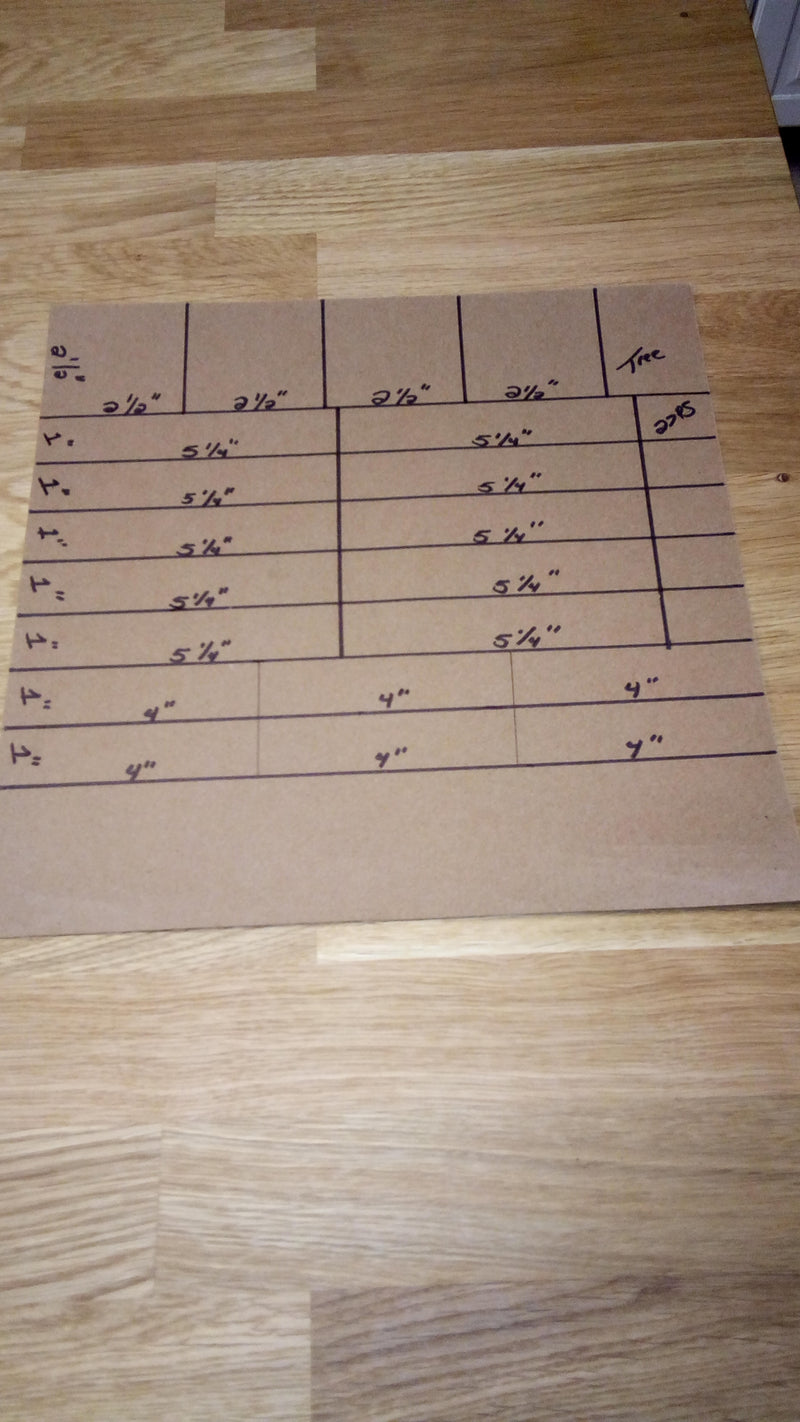 2 1/2"
2 1/2" 2 1/2" 2 1/2" 2 1/2" Tree
1" 5 1/4" 5 1/4"
1" 5 1/4" 5 1/4"
1" 5 1/4" 5 1/4"
1" 5 1/4" 5 1/4"
1" 5 1/4" 5 1/4"
1" 4" 4" 4"
1" 4" 4" 4"